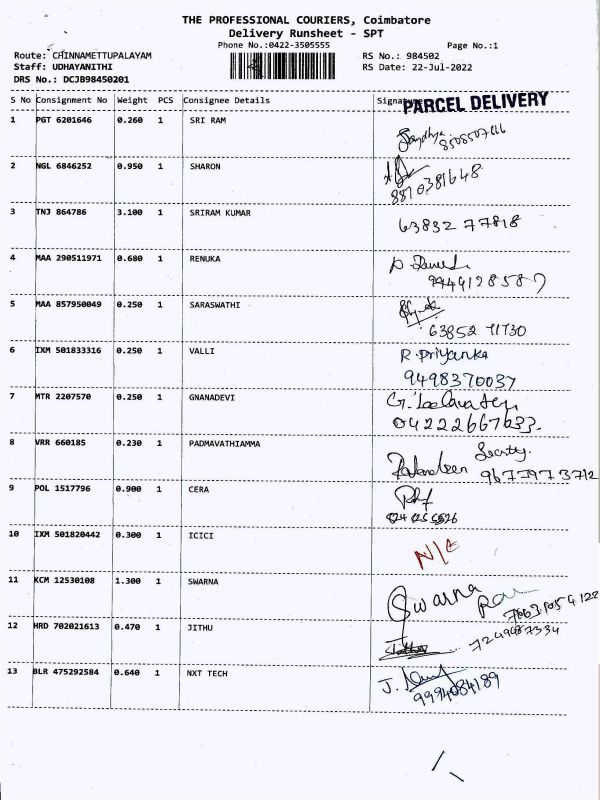 THE PROFESSIONAL COURIERS, Coimbatore
Delivery Runsheet - SPT
Phone No.:0422-3505555 Page No.:1
Route: CHINNAMETTUPALAYAM RS No.: 984502
Staff: UDHAYANITHI RS Date: 22-Jul-2022
DRS No.: DCJB98450201
S No Consignment No Weight PCS Consignee Details Signature
PARCEL DELIVERY
1 PGT 6201646 0.260 1 SRI RAM
2 NGL 6846252 0.950 1 SHARON
8870381648
3 TNJ 864786 3.100 1 SRIRAM KUMAR
63832 77818
4 MAA 290511971 0.680 1 RENUKA
9944128587
5 MAA 857950049 0.250 1 SARASWATHI
63852 71730
6 IXM 501833316 0.250 1 VALLI R. Priyanka
9498370037
7 MTR 2207570 0.250 1 GNANADEVI
04222667633.
8 VRR 660185 0.230 1 PADMAVATHIAMMA
9677973712
9 POL 1517796 0.900 1 CERA
10 IXM 501820442 0.300 1 ICICI
11 KCM 12530108 1.300 1 SWARNA
Swarna
12 HRD 702021613 0.470 1 JITHU
7249687334
13 BLR 475292584 0.640 1 NXT TECH
9994084189